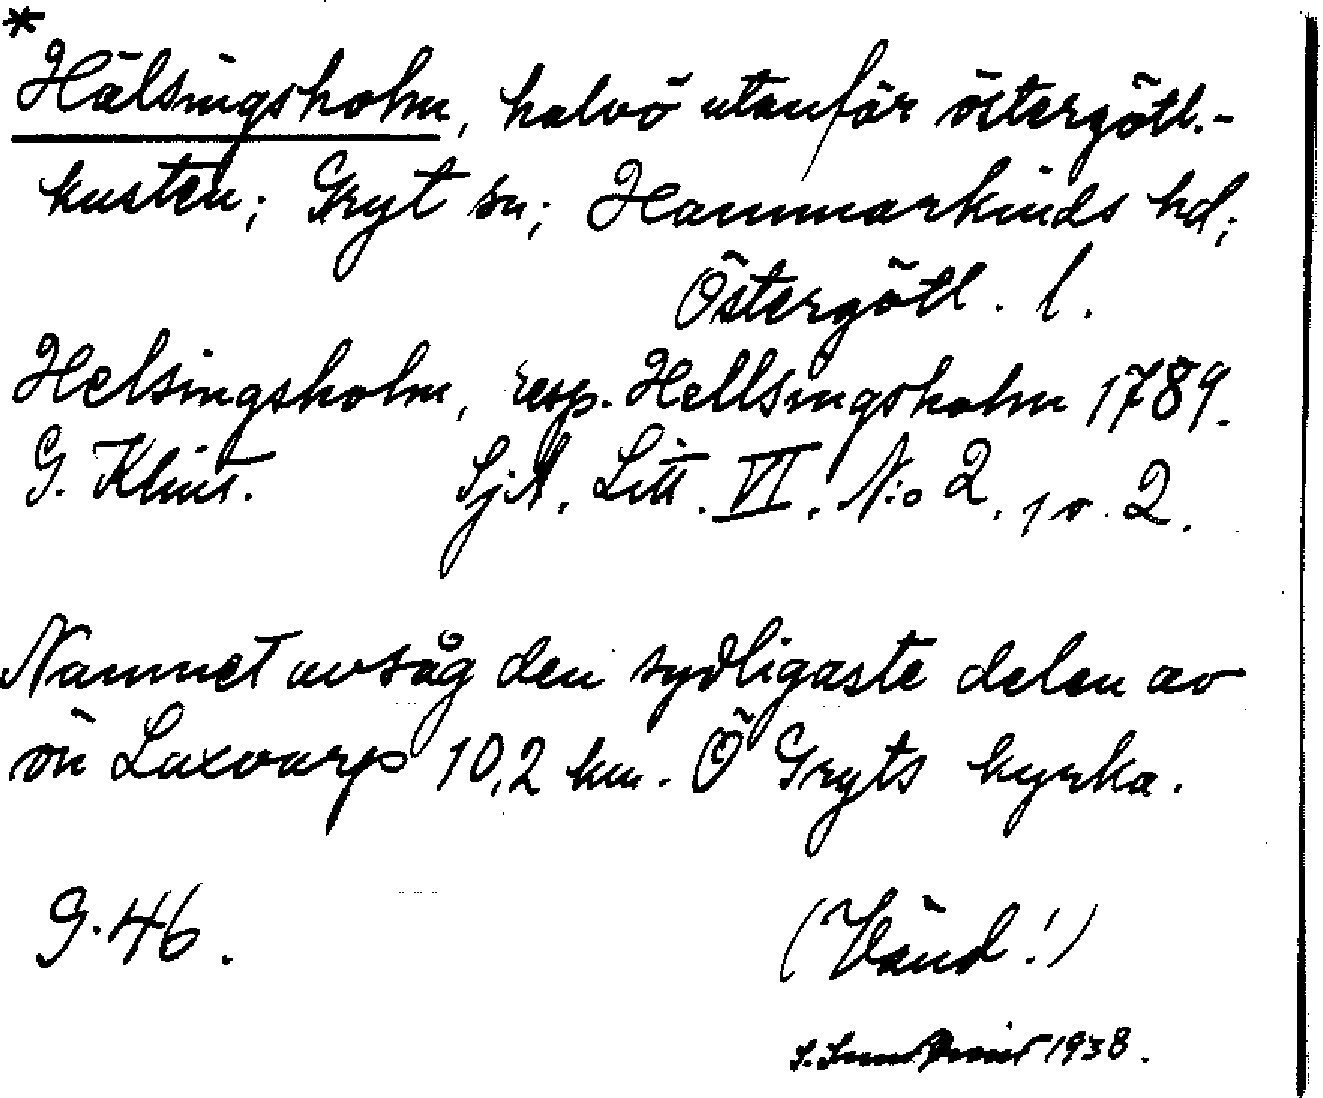 *
Hälsingsholm, halvö utanför östergötl.-
kusten; Gryt sn; Hammarkinds hd;
Östergötl. l.
Helsingsholm, resp. Hellsingsholm 1789.
G. Klint. SjA. Litt. VI. N:o 2. 2.
Namnet avsåg den sydligaste delen av
ön Laxvarp 10,2 km. Ö Gryts kyrka.
G. 46. (Vänd!)
1938.